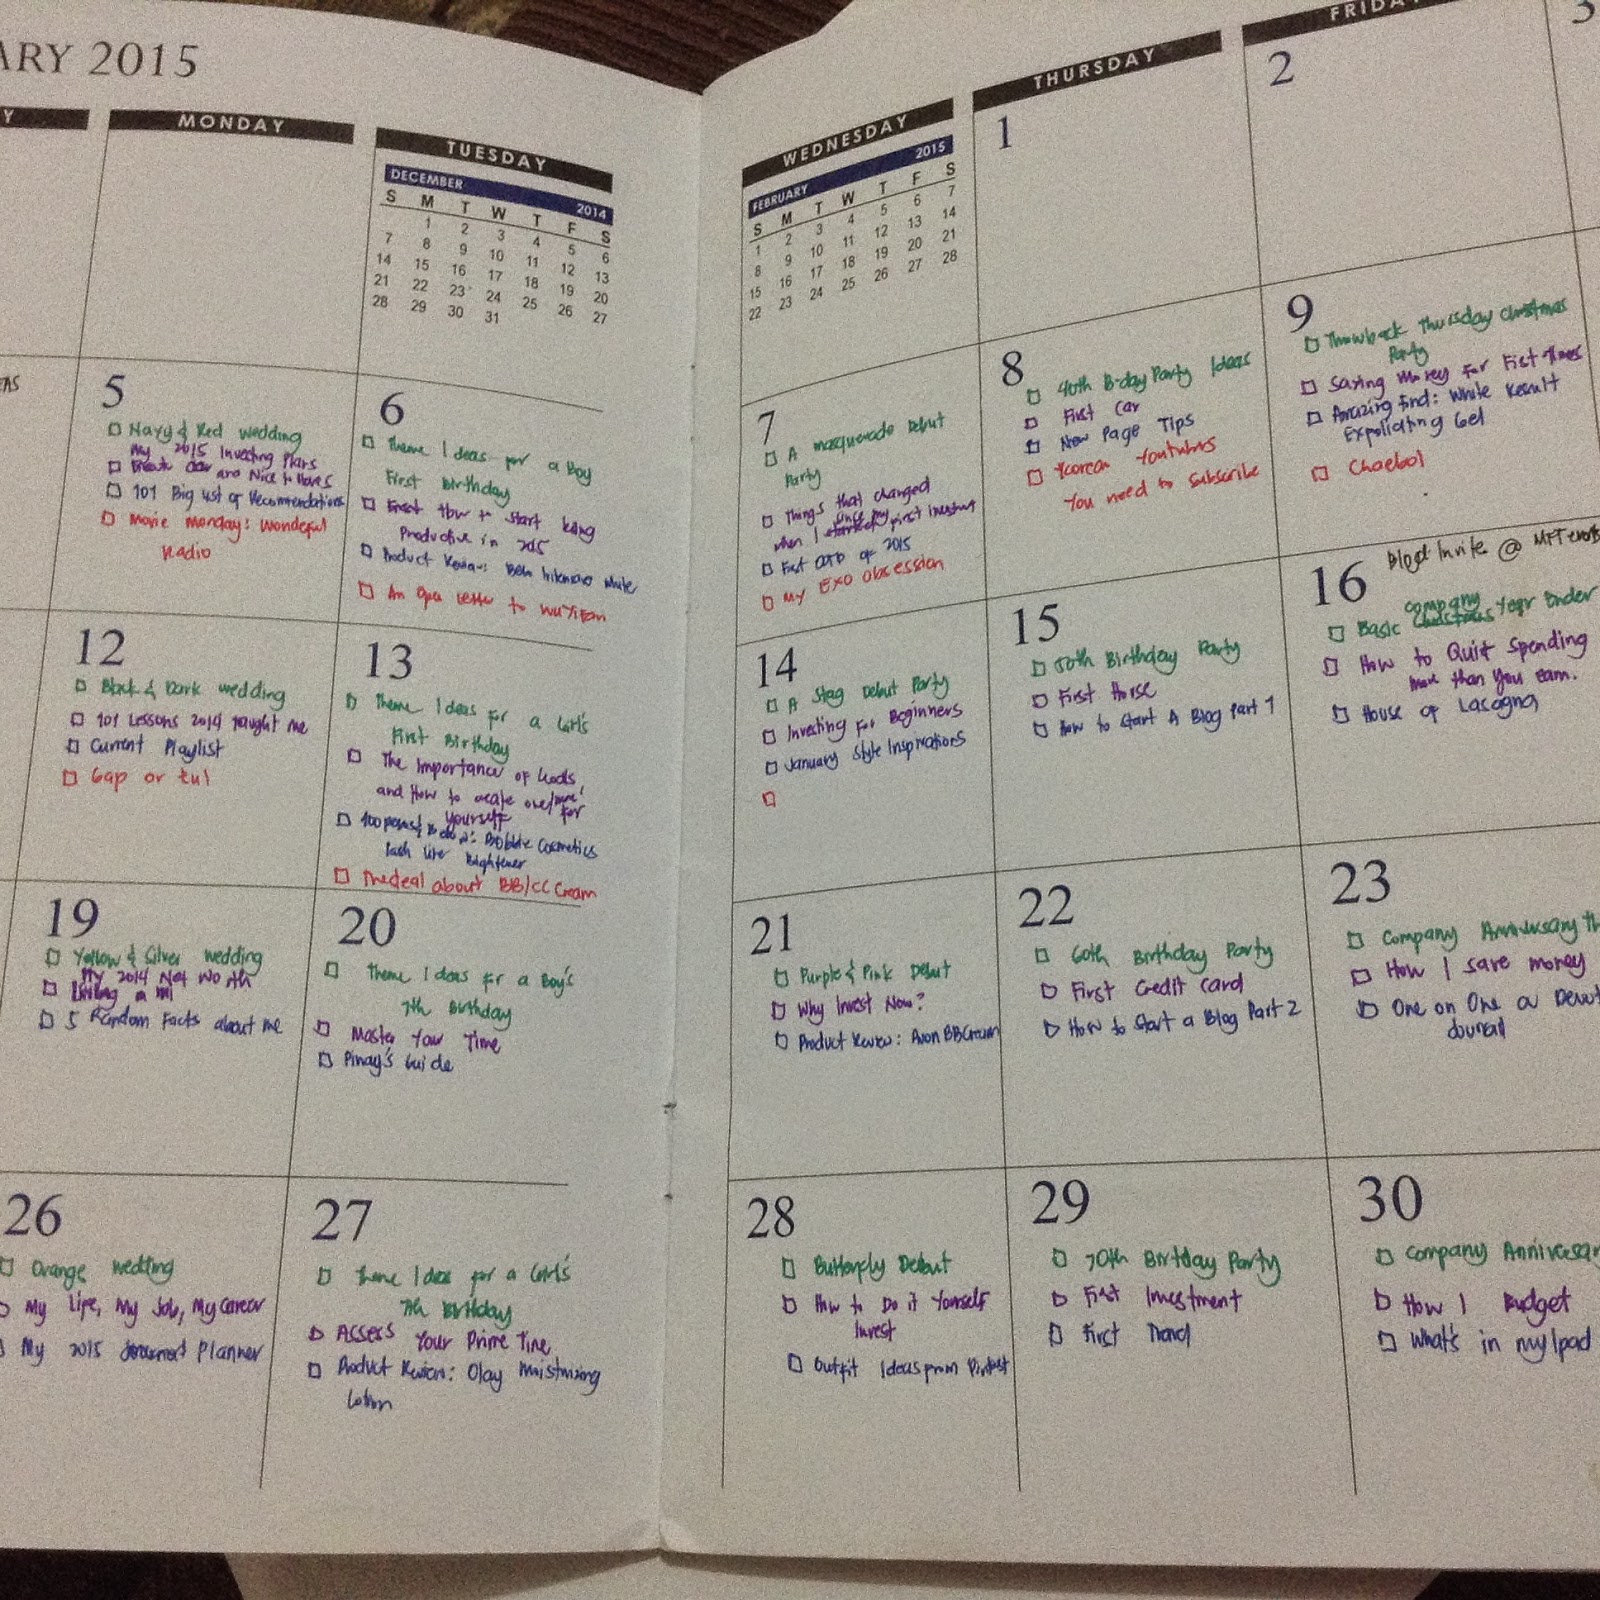 ARY 2015
Y
MONDAY
TUESDAY
DECEMBER 2014
S M T W T F S
1 2 3 4 5 6
7 8 9 10 11 12 13
14 15 16 17 18 19 20
21 22 23 24 25 26 27
28 29 30 31
WEDNESDAY
FEBRUARY 2015
S M T W T F S
1 2 3 4 5 6 7
8 9 10 11 12 13 14
15 16 17 18 19 20 21
22 23 24 25 26 27 28
THURSDAY
1
FRIDA
2
3
EAS
5
Navy & Red wedding
My 2015 Investing Plans
and Nice to Haves
101 Big List of Recommendations
Movie Monday: Wonderful
Radio
6
Theme Ideas for a Boy
First birthday
to Start being
Productive in 2015
Product Review: White
An Open Letter to Wu Yifan
7
A masquerade Debut
Party
Things that changed
since my
when I started first Investment
First OOTD of 2015
My EXO Obsession
8
40th B-day Party Ideas
First Car
New Page Tips
Korean Youtubers
You need to Subscribe
9
Throwback Thursday Christmas
Party
Saving Money for First times
Amazing Find: White Result
Exfoliating Gel
Chaebol
12
Black & Dark wedding
101 Lessons 2014 taught me
Current Playlist
Gap or tul
13
Theme Ideas for a Girl's
First Birthday
The Importance of Goals
and How to create one/more
for
yourself
Cosmetics
Brightener
The deal about BB/CC Cream
14
A Stag Debut Party
Investing for Beginners
January Style Inspirations
15
50th Birthday Party
First House
How to Start A Blog Part 1
16
Blogst Invite @
Company
Basic Christmas Year Ender
How to Quit Spending
more than you earn.
House of Lasagna
19
Yellow & Silver wedding
My 2014 Net Worth
5 Random Facts about me
20
Theme Ideas for a Boy's
7th Birthday
Master Your Time
Pinay's Guide
21
Purple & Pink Debut
Why Invest Now?
Product Review: Avon BB Cream
22
60th Birthday Party
First Credit Card
How to Start a Blog Part 2
23
Company Anniversary Th
How I save money
One on One
Journal
26
Orange wedding
My Life, My Job, My Career
My 2015 Planner
27
Theme Ideas for a Girl's
7th Birthday
Assess Your Prime Time
Product Review: Olay Moisturizing
Lotion
28
Butterfly Debut
How to Do it Yourself
Invest
Outfit Ideas from
29
70th Birthday Party
First Investment
First Travel
30
Company Anniversar
How I Budget
What's in my Ipad